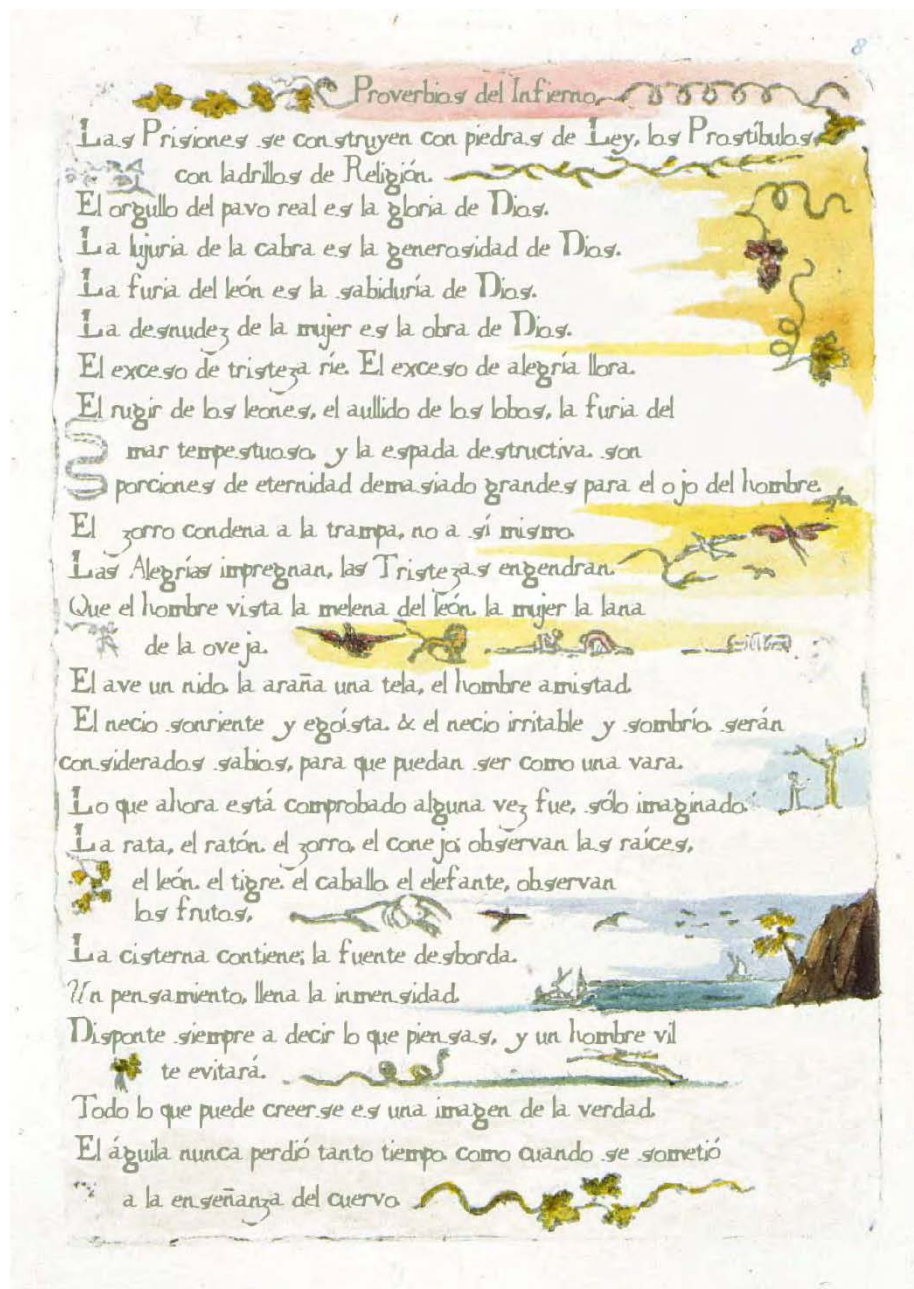 8
Proverbios del Infierno
Las Prisiones se construyen con piedras de Ley, los Prostíbulos,
con ladrillos de Religión.
El orgullo del pavo real es la gloria de Dios.
La lujuria de la cabra es la generosidad de Dios.
La furia del león es la sabiduría de Dios.
La desnudez de la mujer es la obra de Dios.
El exceso de tristeza ríe. El exceso de alegría llora.
El rugir de los leones, el aullido de los lobos, la furia del
mar tempestuoso, y la espada destructiva. son
porciones de eternidad demasiado grandes para el ojo del hombre.
El zorro condena a la trampa, no a sí mismo.
Las Alegrías impregnan, las Tristezas engendran.
Que el hombre vista la melena del león. la mujer la lana
de la oveja.
El ave un nido. la araña una tela, el hombre amistad.
El necio sonriente y egoísta. & el necio irritable y sombrío. serán
considerados sabios, para que puedan ser como una vara.
Lo que ahora está comprobado alguna vez fue, sólo imaginado.
La rata, el ratón. el zorro, el conejo; observan las raíces,
el león. el tigre. el caballo. el elefante, observan
los frutos,
La cisterna contiene; la fuente desborda.
Un pensamiento, llena la inmensidad.
Disponte siempre a decir lo que piensas, y un hombre vil
te evitará.
Todo lo que puede creerse es una imagen de la verdad.
El águila nunca perdió tanto tiempo. como cuando se sometió
a la enseñanza del cuervo.